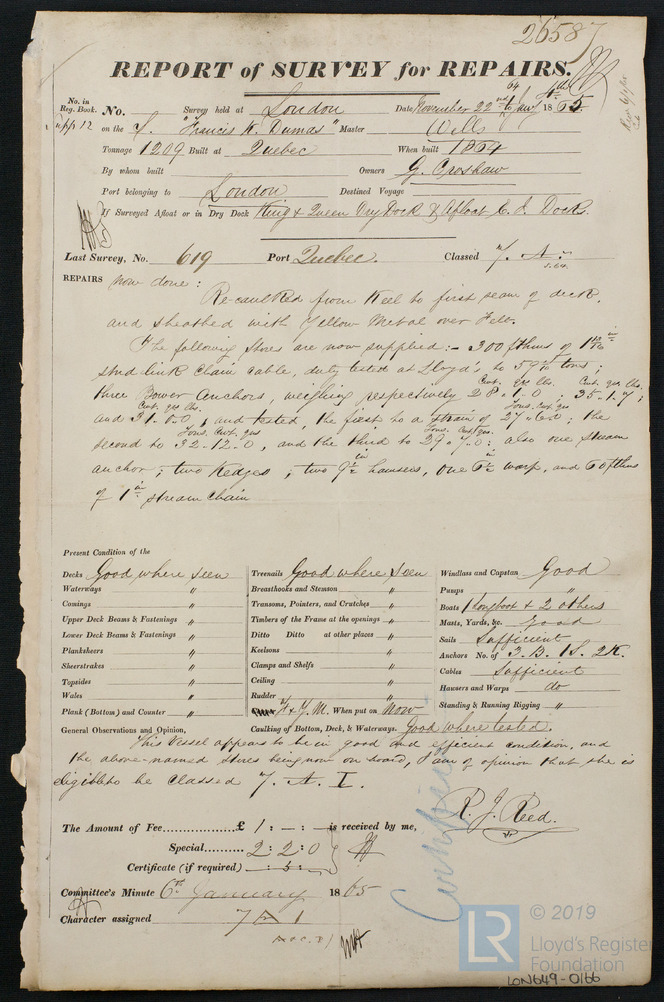 26587
REPORT of SURVEY for REPAIRS.
No. in Reg. Book. No. Survey held at London Date November 22nd 64 to Jany 4th 1865.
Supp 12 on the S. "Francis H. Dumas" Master Wells
Tonnage 1209 Built at Quebec When built 1864
By whom built Owners G. Croshaw
Port belonging to London Destined Voyage
If Surveyed Afloat or in Dry Dock King & Queen Dry Dock & Afloat C. I. Docks.
Last Survey, No. 619 Port Quebec. Classed 7. A. 1
5.64.
REPAIRS now done:
Re-caulked from Keel to first seam of deck,
and sheathed with Yellow Metal over Felt.
The following stores are now supplied:- 300 fthms of 1 in
stud link chain cable, duly tested at Lloyd's to tons;
Cwt. qrs lbs. Cwt. qrs. lbs.
three Bower Anchors, weighing respectively 28.1.0; 35.1.7;
Cwt. qrs lbs. Tons. Cwt. qrs
and 31.0.0, and tested, the first to a strain of 27.6.0; the
Tons. Cwt. qrs Tons. Cwt. qrs.
second to 32.12.0, and the third to 29.7.0: also one stream
anchor; two Kedges; two 9½ in hawsers, one 6½ in warp, and 60 fthms
of 1 in stream chain
Present Condition of the
Decks Good where seen Treenails Good where seen Windlass and Capstan Good
Waterways " Breasthooks and Stemson " Pumps "
Comings " Transoms, Pointers, and Crutches " Boats 1 Longboat & 2 others
Upper Deck Beams & Fastenings " Timbers of the Frame at the openings " Masts, Yards, &c. good
Lower Deck Beams & Fastenings " Ditto Ditto at other places " Sails Sufficient
Planksheers " Keelsons " Anchors No. of 3.B. 1S. 2K.
Sheerstrakes " Clamps and Shelfs " Cables Sufficient
Topsides " Ceiling " Hawsers and Warps do
Wales " Rudder " Standing & Running Rigging "
Plank (Bottom) and Counter " F & Y.M. When put on Now
General Observations and Opinion, Caulking of Bottom, Deck, & Waterways. Good where tested.
This Vessel appears to be in good and efficient condition, and
the above-named stores being now on board, I am of opinion that she is
eligible to be Classed 7. A. I.
R. J. Reed.
The Amount of Fee £ 1:-:- is received by me,
Special 2:2:0
Certificate (if required) -:5:-
Certificate
Committee's Minute 6th January 1865
Character assigned 7 A 1
© 2019
LR
Lloyd's Register
Foundation
LON649-0166